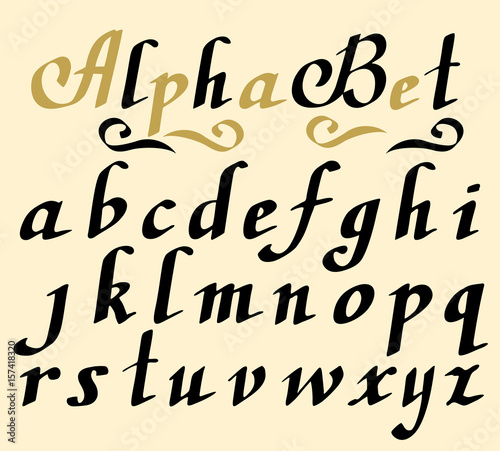 AlphaBet
abcdefghi
jklmnopq
rstuvwxyz
Adobe Stock | #157418320